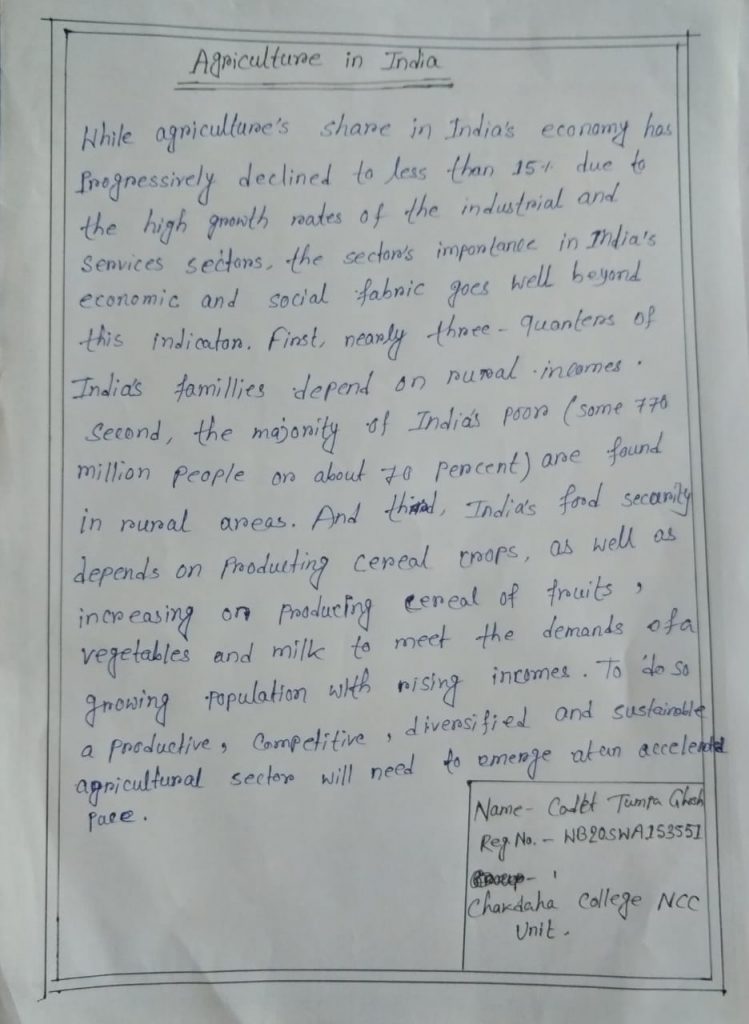 Agriculture in India
While agriculture's share in India's economy has
Progressively declined to less than 15% due to
the high growth rates of the industrial and
Services sectors, the sector's importance in India's
economic and social fabric goes well beyond
this indicator. First, nearly three-quarters of
India's famillies depend on rural incomes.
Second, the majority of India's poor (some 770
million people or about 70 percent) are found
in rural areas. And third, India's food security
depends on Producting cereal crops, as well as
increasing on producing cereal of fruits,
vegetables and milk to meet the demands of a
growing population with rising incomes. To do so
a productive, Competitive, diversified and sustainable
agricultural sector will need to emerge at an accelerated
Pace.
Name- Cadet Tumpa Ghosh
Reg No. - WB20SWA153551
Chakdaha College NCC
Unit.